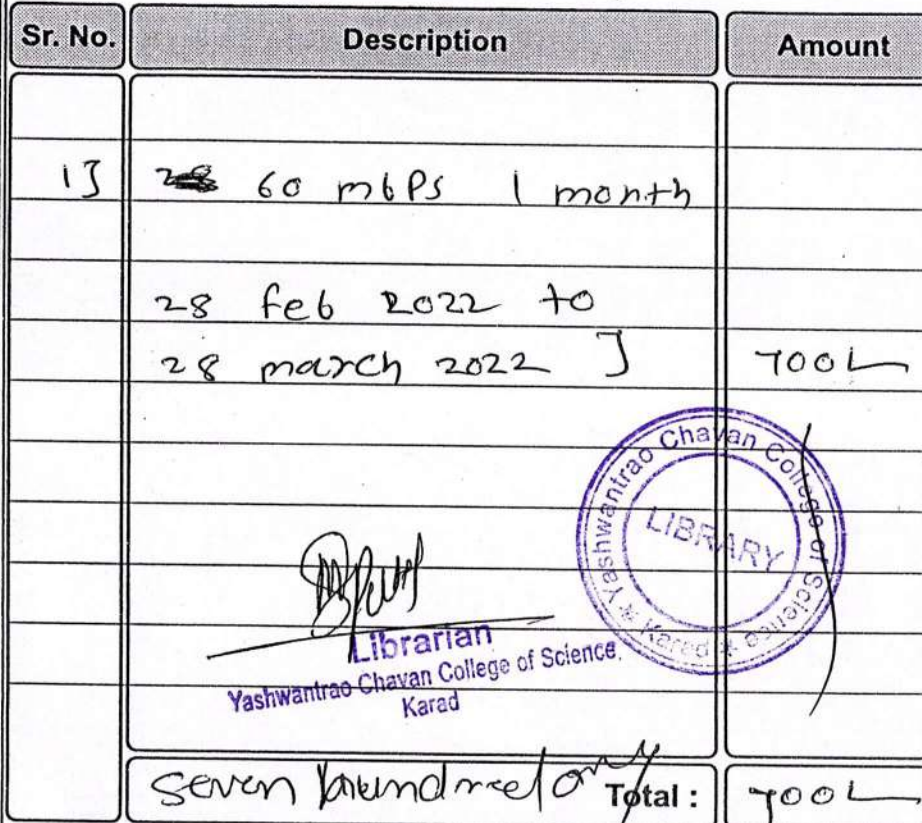 Sr. No. Description Amount
1] 60 mbps 1 month
28 feb 2022 to
28 march 2022 ] 700/-
Yashwantrao Chavan College of Science
Karad
LIBRARY
Librarian
Yashwantrao Chavan College of Science,
Karad
Seven hundred only Total : 700/-